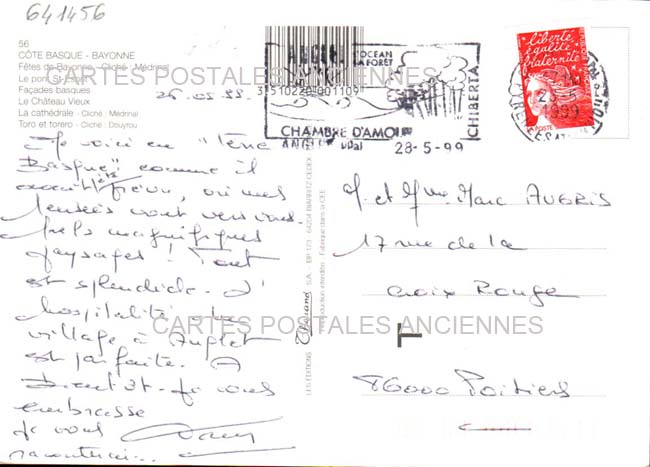 641456
56
CÔTE BASQUE - BAYONNE
Fêtes de Bayonne - Cliché : Médrinal
Le pont St-Esprit
Façades basques
Le Château Vieux
La cathédrale - Cliché : Médrinal
Toro et torero - Cliché : Douyrou
26.05.99.
CARTES POSTALES ANCIENNES
Me voici en "Terre
Basque" comme il
avait été prévu, où mes
pensées vont vers vous.
magnifiques
paysages ! Tout
est splendide. L'
hospitalité du
village à Anglet
est parfaite. A
Bientôt. Je vous
embrasse
Je vous
raconterai...
LES ÉDITIONS S.A. - BP 173 - 64204 BIARRITZ CEDEX
Reproduction interdite - Fabriqué dans la CEE
ANGLET
L'OCEAN
LA FORÊT
CHIBERTA
CHAMBRE D'AMOUR
28-5-99
liberté
égalité
fraternité
LA POSTE
1999
M. et Mme Marc AUGRIS
17 rue de la
Croix Rouge
CARTES POSTALES ANCIENNES
86000 Poitiers